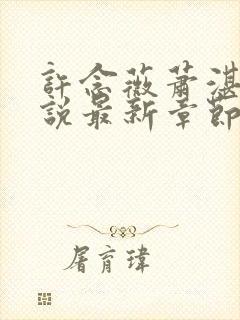 許念薇蕭湛
說最新章節
屠育瑋